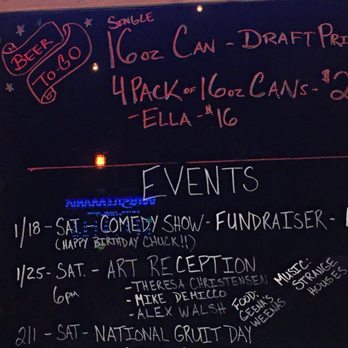 BEER
TO-GO
SINGLE
16oz CAN - DRAFT PRI
4 PACK OF 16oz CANS - $2
- ELLA - $16
EVENTS
1/18 - SAT. - COMEDY SHOW - FUNDRAISER -
(HAPPY BIRTHDAY CHUCK!!)
1/25 - SAT. - ART RECEPTION
6pm
- THERESA CHRISTENSEN
- MIKE DEMICCO
- ALEX WALSH
FOOD:
GEENA'S
WEENUS
MUSIC:
STRANGE
HOUSES
2/1 - SAT - NATIONAL GRUIT DAY